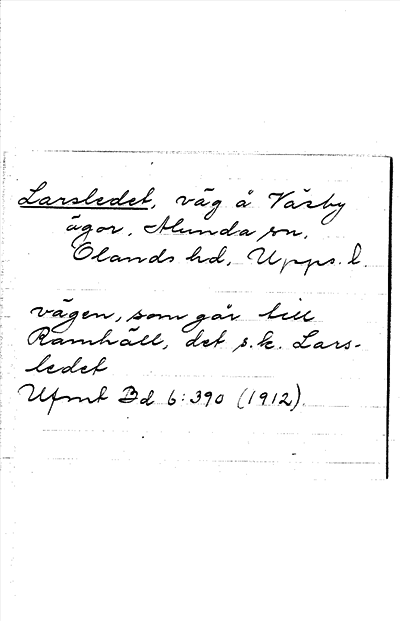 Larsledet, väg å Väsby
ägor, Alunda sn,
Olands hd, Upps. l.
vägen, som går till
Ramhäll, det s.k. Lars-
ledet
Ufmt Bd 6:390 (1912).